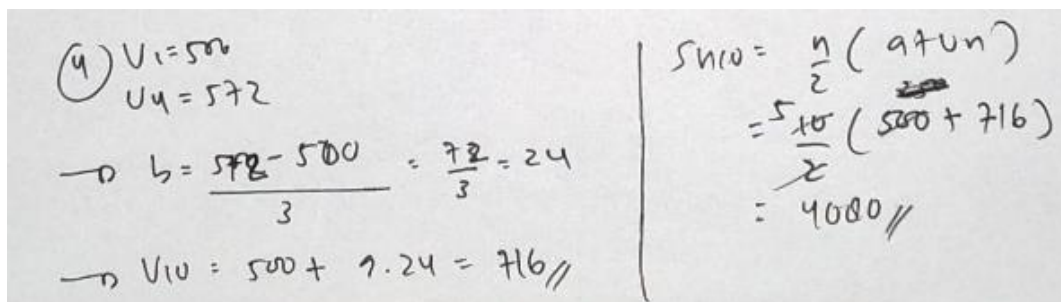 4) U1 = 500
U4 = 572
→ b = 572 - 500 / 3 = 72 / 3 = 24
→ U10 = 500 + 9.24 = 716 //
Sn10 = n/2 (a + Un)
= 5 10/2 (500 + 716)
= 4080 //